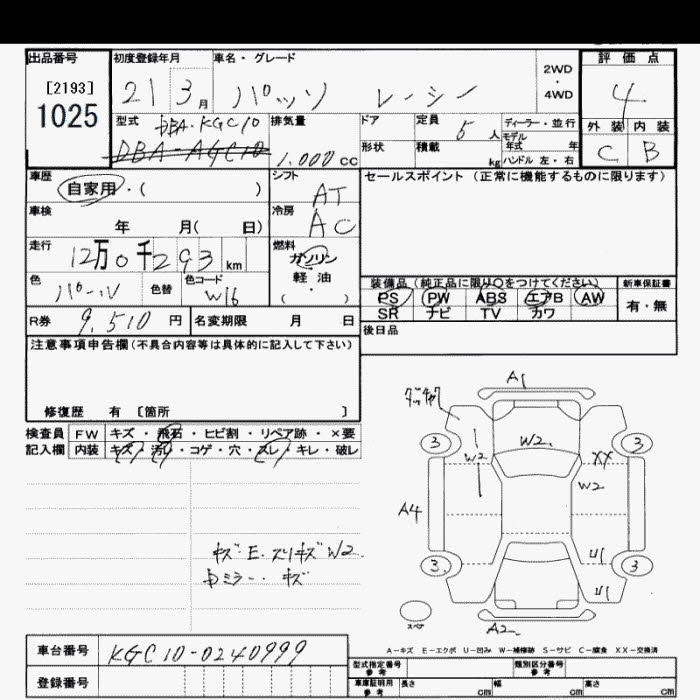 出品番号 初度登録年月 車名・グレード 2WD 4WD 評価点
[2193]
1025
21 3月 パッソ レーシー 4
型式 DBA-KGC10 排気量 ドア 定員 5人 ディーラー・並行 外装 内装
モデル年式 年
DBA-AGC10 1.000cc 形状 積載 kg ハンドル 左・右 C B
車歴 シフト セールスポイント (正常に機能するものに限ります)
自家用・( ) AT
車検 冷房
年 月( 日) AC
走行 燃料
12万0千293km ガソリン
色 色替 色コード 軽油 装備品 (純正品に限り○をつけてください) 新車保証書
パール W16 ( ) PS PW ABS エアB AW 有・無
SR ナビ TV カワ
R券 9,510円 名変期限 月 日 後日品
注意事項申告欄(不具合内容等は具体的に記入して下さい)
修復歴 有 [箇所 ]
検査員 FW キズ・飛石・ヒビ割・リペア跡・×要
記入欄 内装 キズ・汚れ・コゲ・穴・スレ・キレ・破レ
A1
3 W2 W2 XX 3
W2
A4
キズ・E・スリキズW2
ミラー・キズ
3 U1 3
U1
スペア A2
A-キズ E-エクボ U-凹み W-補修跡 S-サビ C-腐食 XX-交換済
車台番号 KGC10-0240999
型式指定番号 参考 類別区分番号 参考
登録番号 車庫証明用 参考 長さ cm 幅 cm 高さ cm